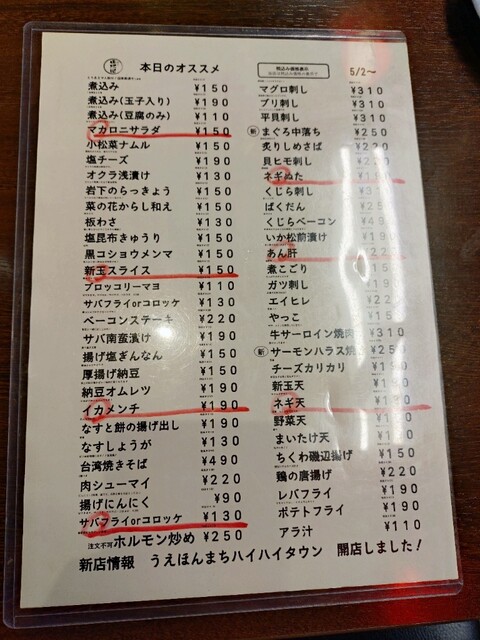 本日のオススメ
税込み価格表示
5/2〜
煮込み ¥150
煮込み(玉子入り) ¥190
煮込み(豆腐のみ) ¥110
マカロニサラダ ¥150
小松菜ナムル ¥150
塩チーズ ¥190
オクラ浅漬け ¥130
岩下のらっきょう ¥150
菜の花からし和え ¥150
板わさ ¥130
塩昆布きゅうり ¥150
黒コショウメンマ ¥150
新玉スライス ¥150
ブロッコリーマヨ ¥110
サバフライorコロッケ ¥130
ベーコンステーキ ¥220
サバ南蛮漬け ¥190
揚げ塩ぎんなん ¥150
厚揚げ納豆 ¥150
納豆オムレツ ¥190
イカメンチ ¥190
なすと餅の揚げ出し ¥190
なすしょうが ¥130
台湾焼きそば ¥490
肉シューマイ ¥220
揚げにんにく ¥90
サバフライorコロッケ ¥130
注文不可 ホルモン炒め ¥250
マグロ刺し ¥310
ブリ刺し ¥310
平貝刺し ¥310
新 まぐろ中落ち ¥250
炙りしめさば ¥220
貝ヒモ刺し ¥220
ネギぬた
くじら刺し ¥310
ばくだん
くじらベーコン
いか松前漬け ¥190
あん肝 ¥220
煮こごり ¥150
ガツ刺し ¥190
エイヒレ
やっこ ¥150
牛サーロイン焼肉 ¥310
新 サーモンハラス焼 ¥250
チーズカリカリ ¥190
新玉天 ¥190
ネギ天 ¥130
野菜天 ¥190
まいたけ天 ¥190
ちくわ磯辺揚げ ¥150
鶏の唐揚げ ¥220
レバフライ ¥190
ポテトフライ ¥190
アラ汁 ¥110
新店情報 うえほんまちハイハイタウン 開店しました!